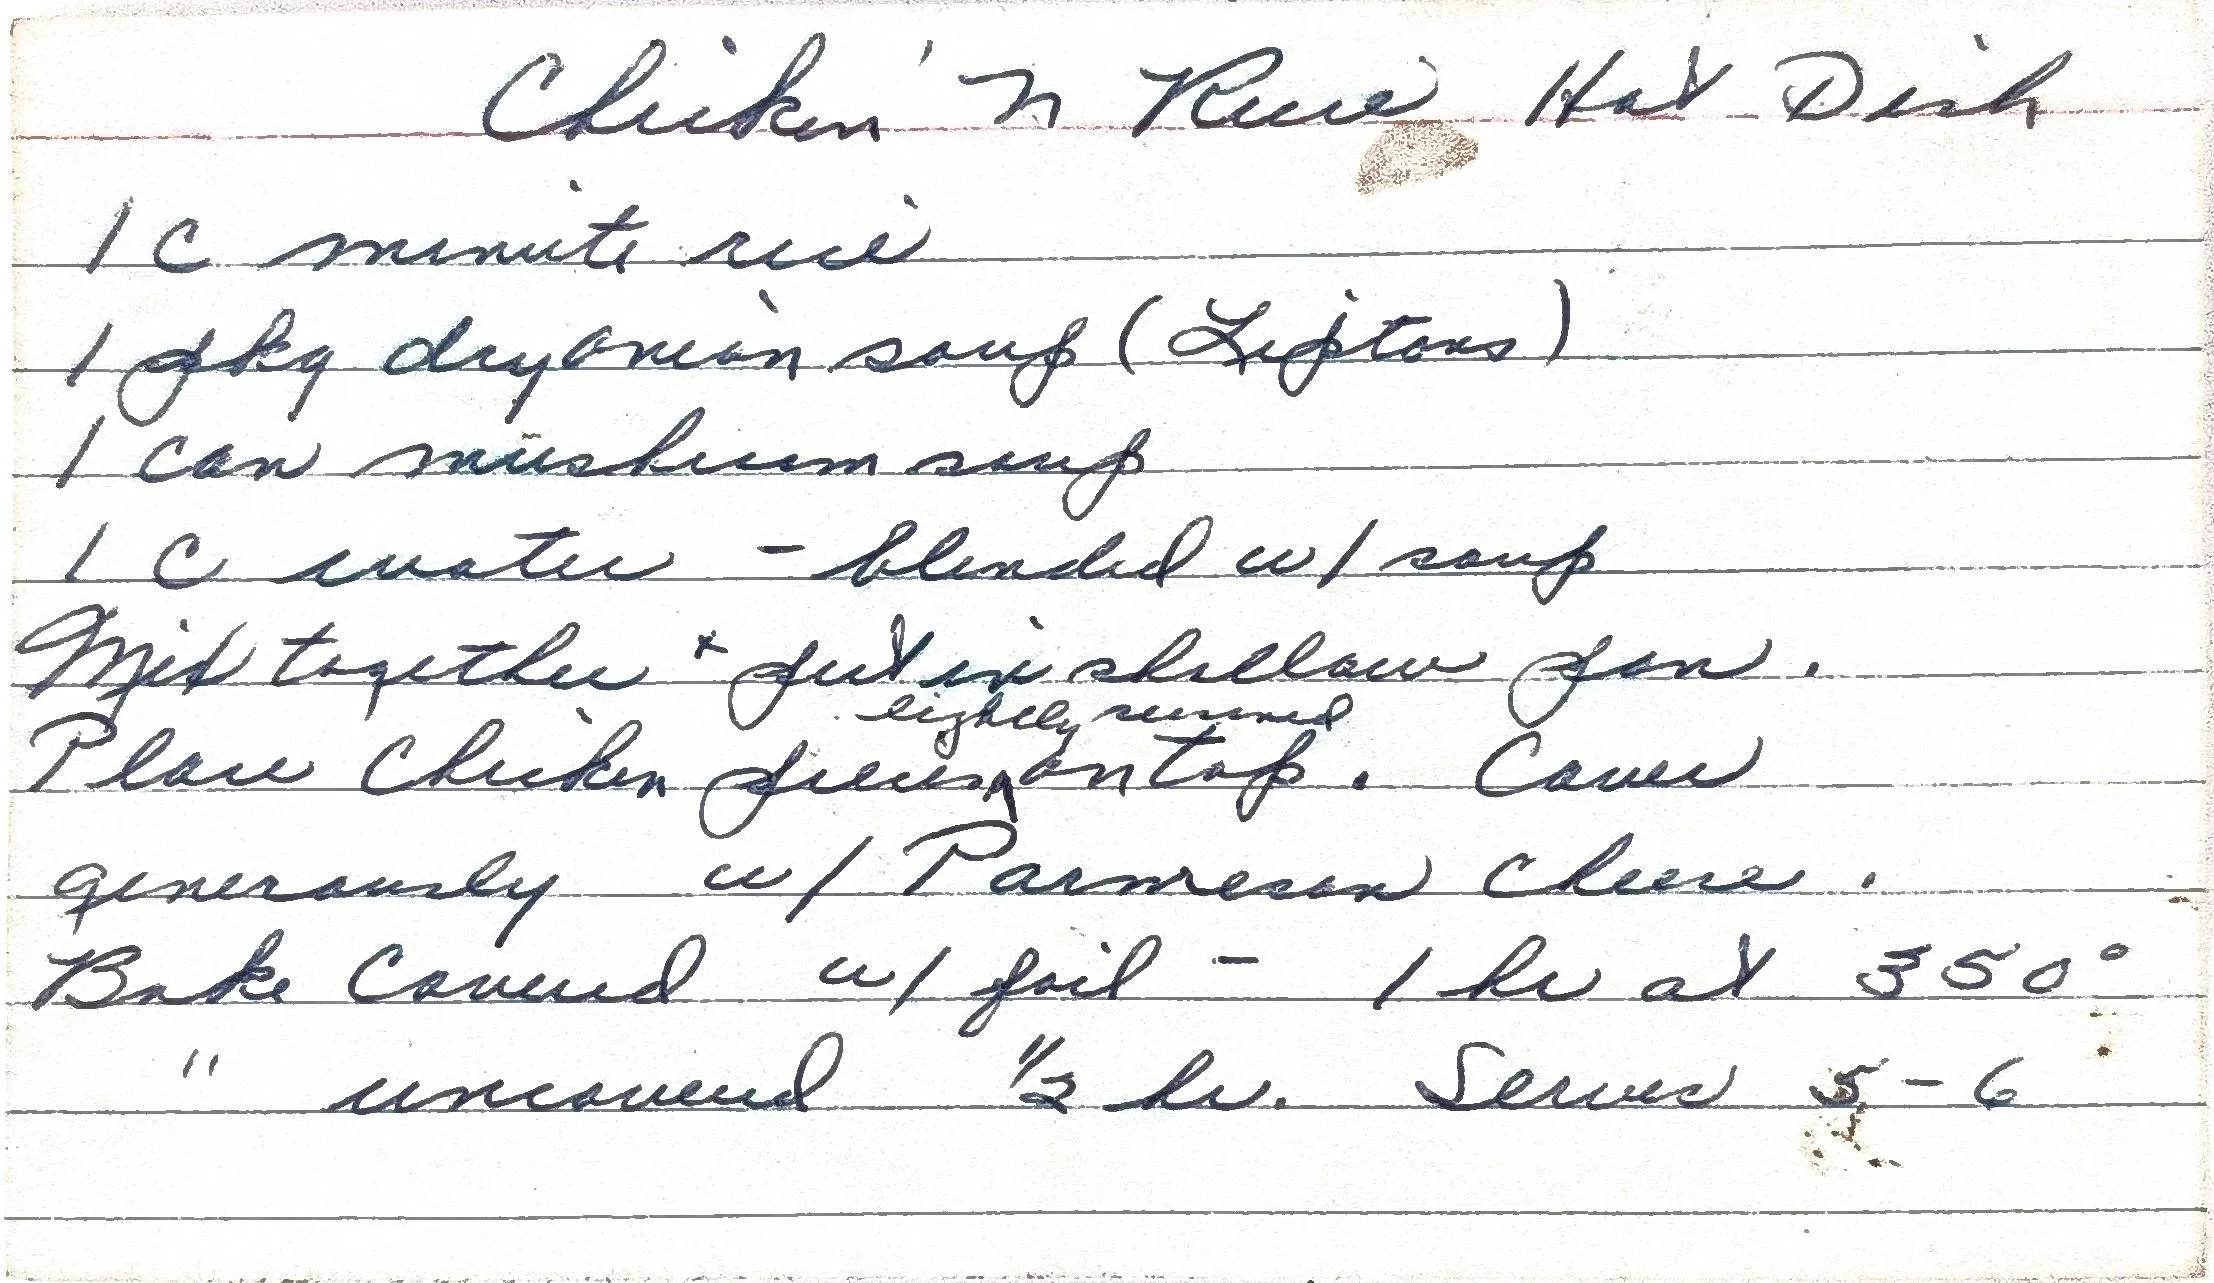 Chicken 'n Rice Hot Dish
1 c minute rice
1 pkg dry onion soup (Liptons)
1 can mushroom soup
1 c water - blended w/ soup
Mix together + put in shallow pan.
lightly seasoned
Place Chicken pieces ^ on top. Cover
generously w/ Parmesan cheese.
Bake Covered w/ foil - 1 hr at 350°
" uncovered 1/2 hr. Serves 5-6